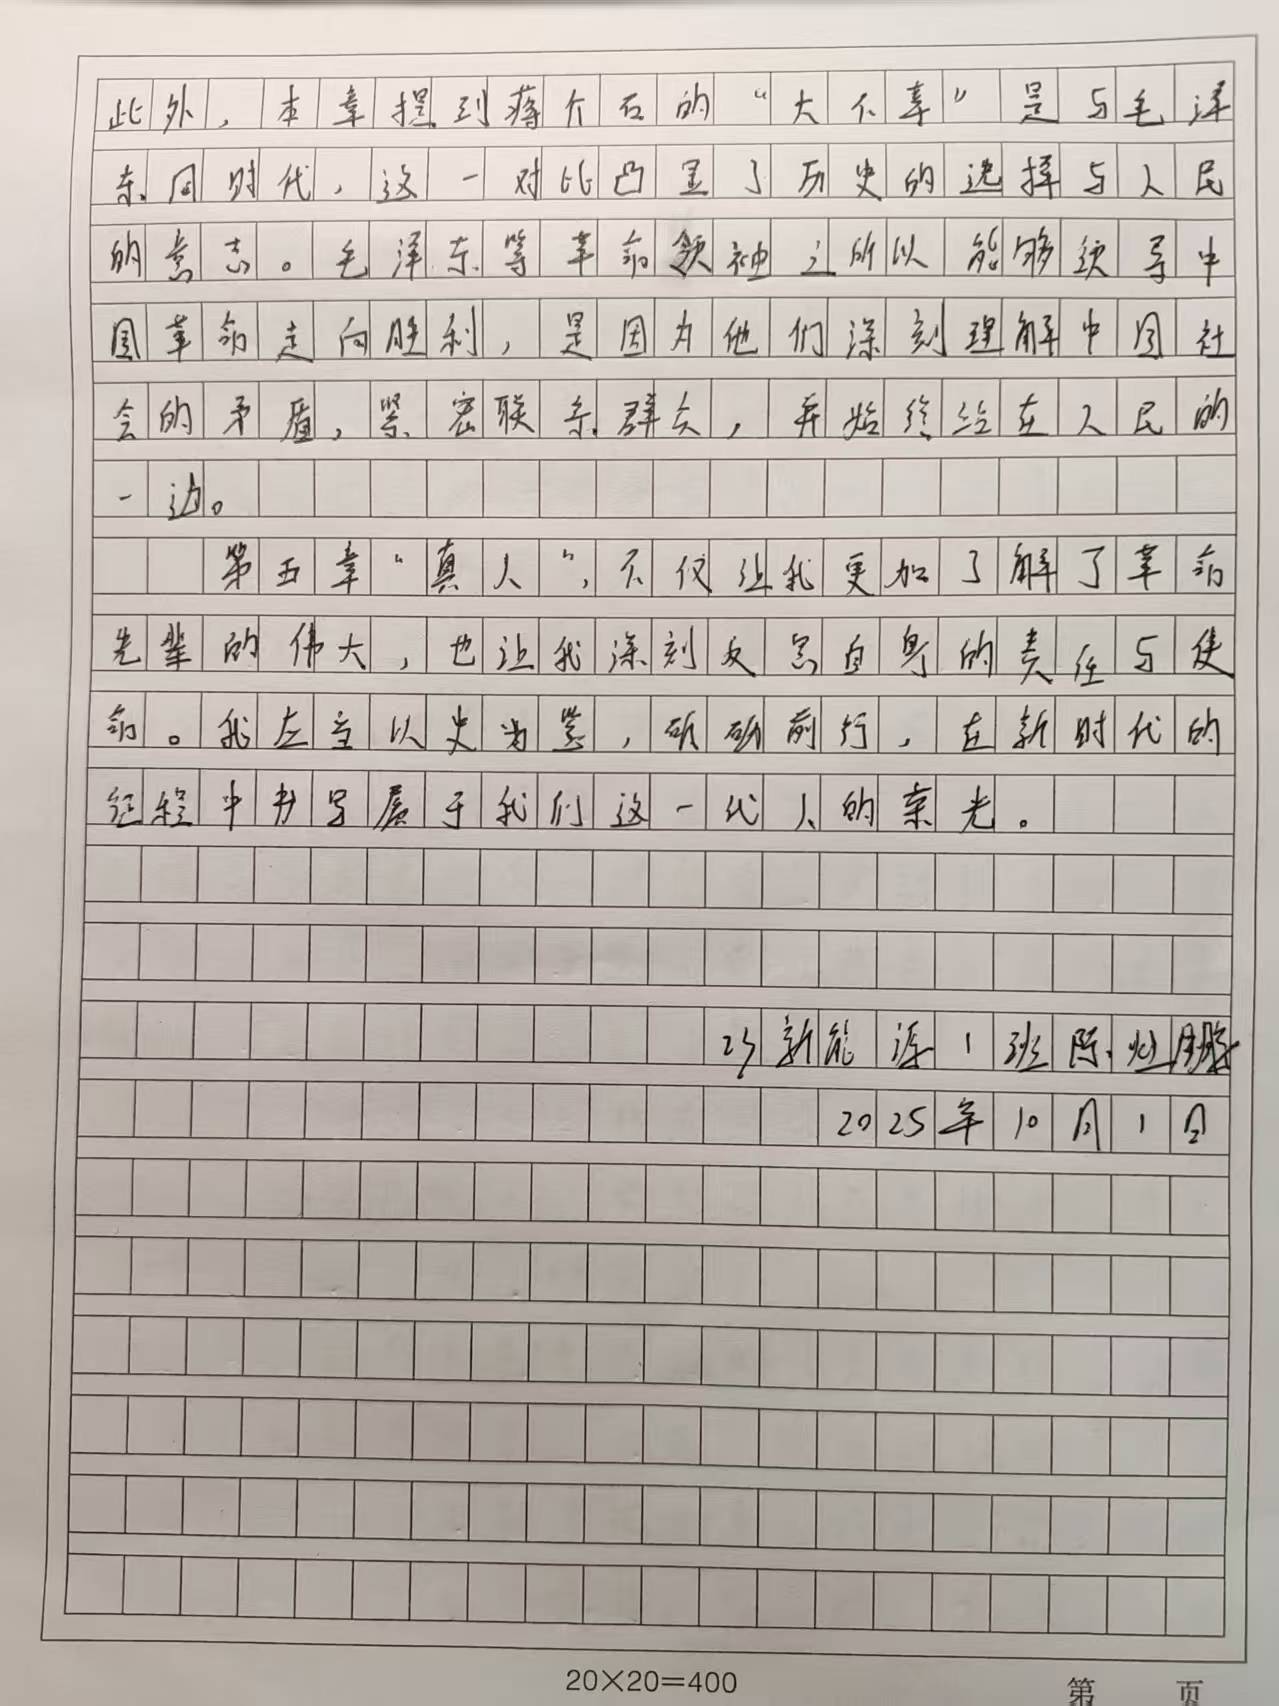 此外，本章提到蒋介石的“大不幸”是与毛泽
东同时代，这一对比凸显了历史的选择与人民
的意志。毛泽东等革命领袖之所以能够领导中
国革命走向胜利，是因为他们深刻理解中国社
会的矛盾，紧密联系群众，并始终站在人民的
一边。
第五章“真人”，不仅让我更加了解了革命
先辈的伟大，也让我深刻反思自身的责任与使
命。我应以史为鉴，砥砺前行，在新时代的
征程中书写属于我们这一代人的荣光。
新能源1班陈灿
2025年10月1日
20×20=400
第 页